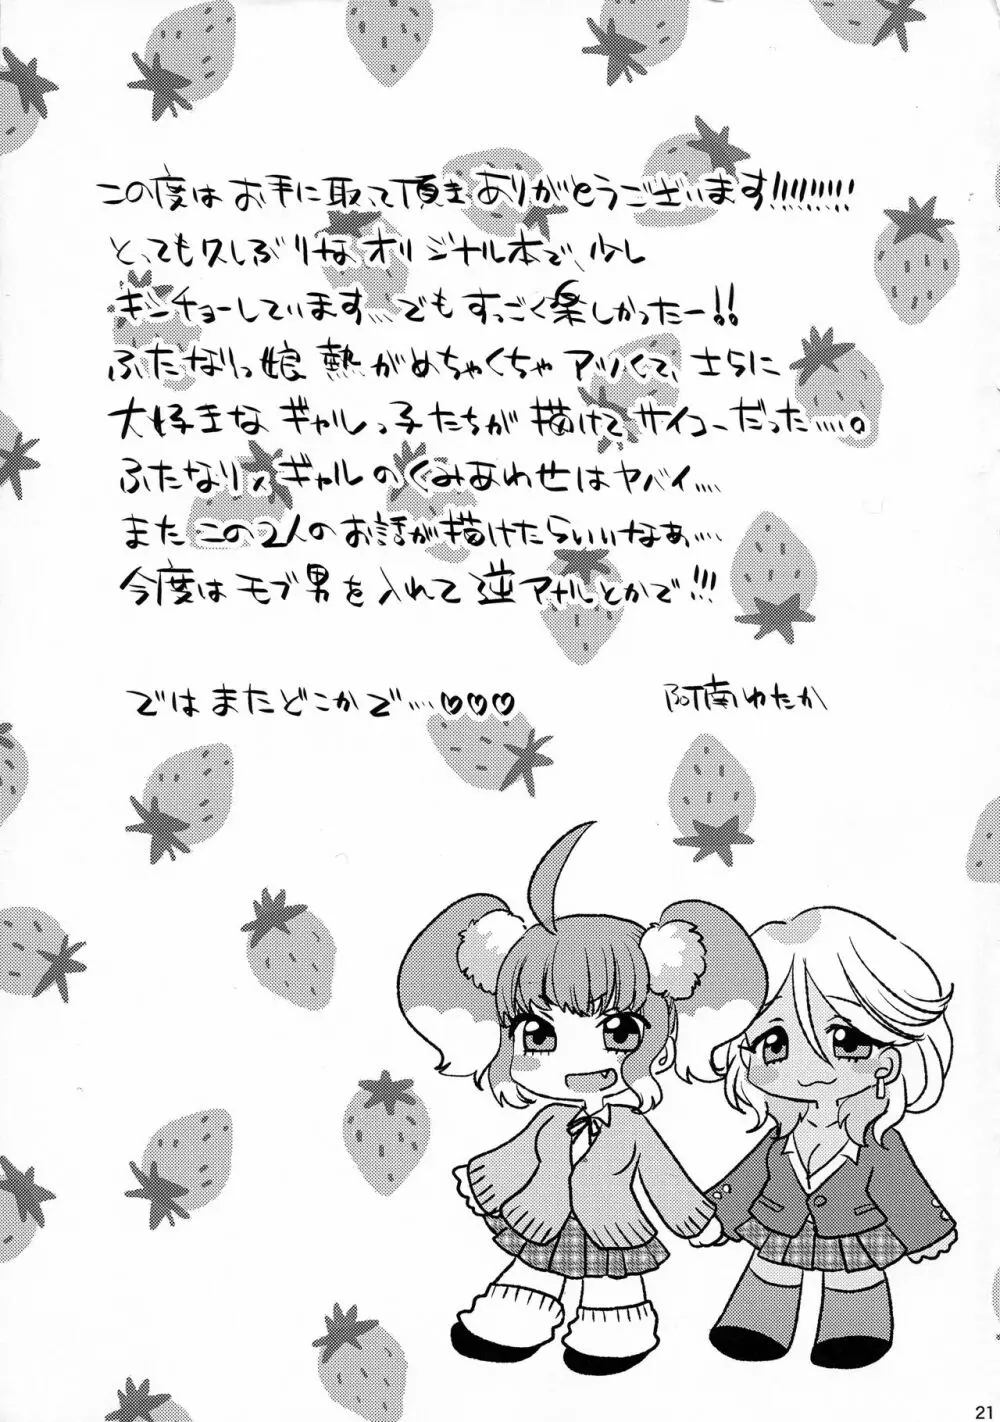 この度は お手に取って頂き ありがとうございます!!!!!!!!!
とっても久しぶりな オリジナル本で、少し
キンチョーしています....でも すっごく楽しかったー!!
ふたなりっ娘 熱がめちゃくちゃ アツくて、さらに
大好きな ギャルっ子たちが 描けて サイコーだった.....。
ふたなり×ギャル のくみあわせは ヤバイ....
また この2人の お話が描けたらいいなぁ....
今度は モブ男を 入れて 逆アナルとかで!!!
ではまたどこかで...♡♡♡
阿南ゆたか
21